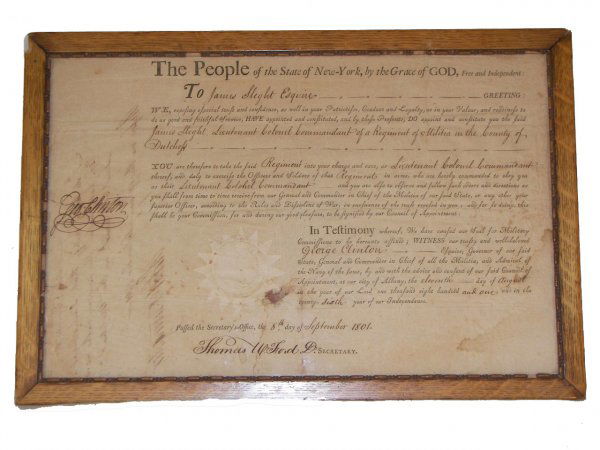 The People of the State of New-York, by the Grace of GOD, Free and Independent:
To James Sleght Esquire GREETING:
WE, reposing especial trust and confidence, as well in your Patriotism, Conduct and Loyalty, as in your Valour, and readiness to
do us good and faithful Service, HAVE appointed and constituted, and by these Presents, DO appoint and constitute you the said
James Sleght Lieutenant Colonel Commandant of a Regiment of Militia in the County of
Dutchess
YOU are therefore to take the said Regiment into your charge and care, as Lieutenant Colonel Commandant
thereof, and duly to exercise the Officers and Soldiers of that Regiment in arms, who are hereby commanded to obey you
as their Lieutenant Colonel Commandant and you are also to observe and follow such orders and directions as
you shall from time to time receive from our General and Commander in Chief of the Militia of our said State, or any other your
Superior Officer, according to the Rules and Discipline of War, in pursuance of the trust reposed in you; and for so doing, this
shall be your Commission, for and during our good pleasure, to be signified by our Council of Appointment.
Geo Clinton
In Testimony whereof, We have caused our Seal for Military
Commissions to be hereunto affixed; WITNESS our trusty and well-beloved
George Clinton Esquire, Governor of our said
State, General and Commander in Chief of all the Militia, and Admiral of
the Navy of the same, by and with the advice and consent of our said Council of
Appointment, at our city of Albany, the eleventh day of August
in the year of our Lord one thousand eight hundred and one and in the
twenty-sixth year of our Independence.
Passed the Secretary's Office, the 8th day of September 1801.
Thomas SECRETARY.